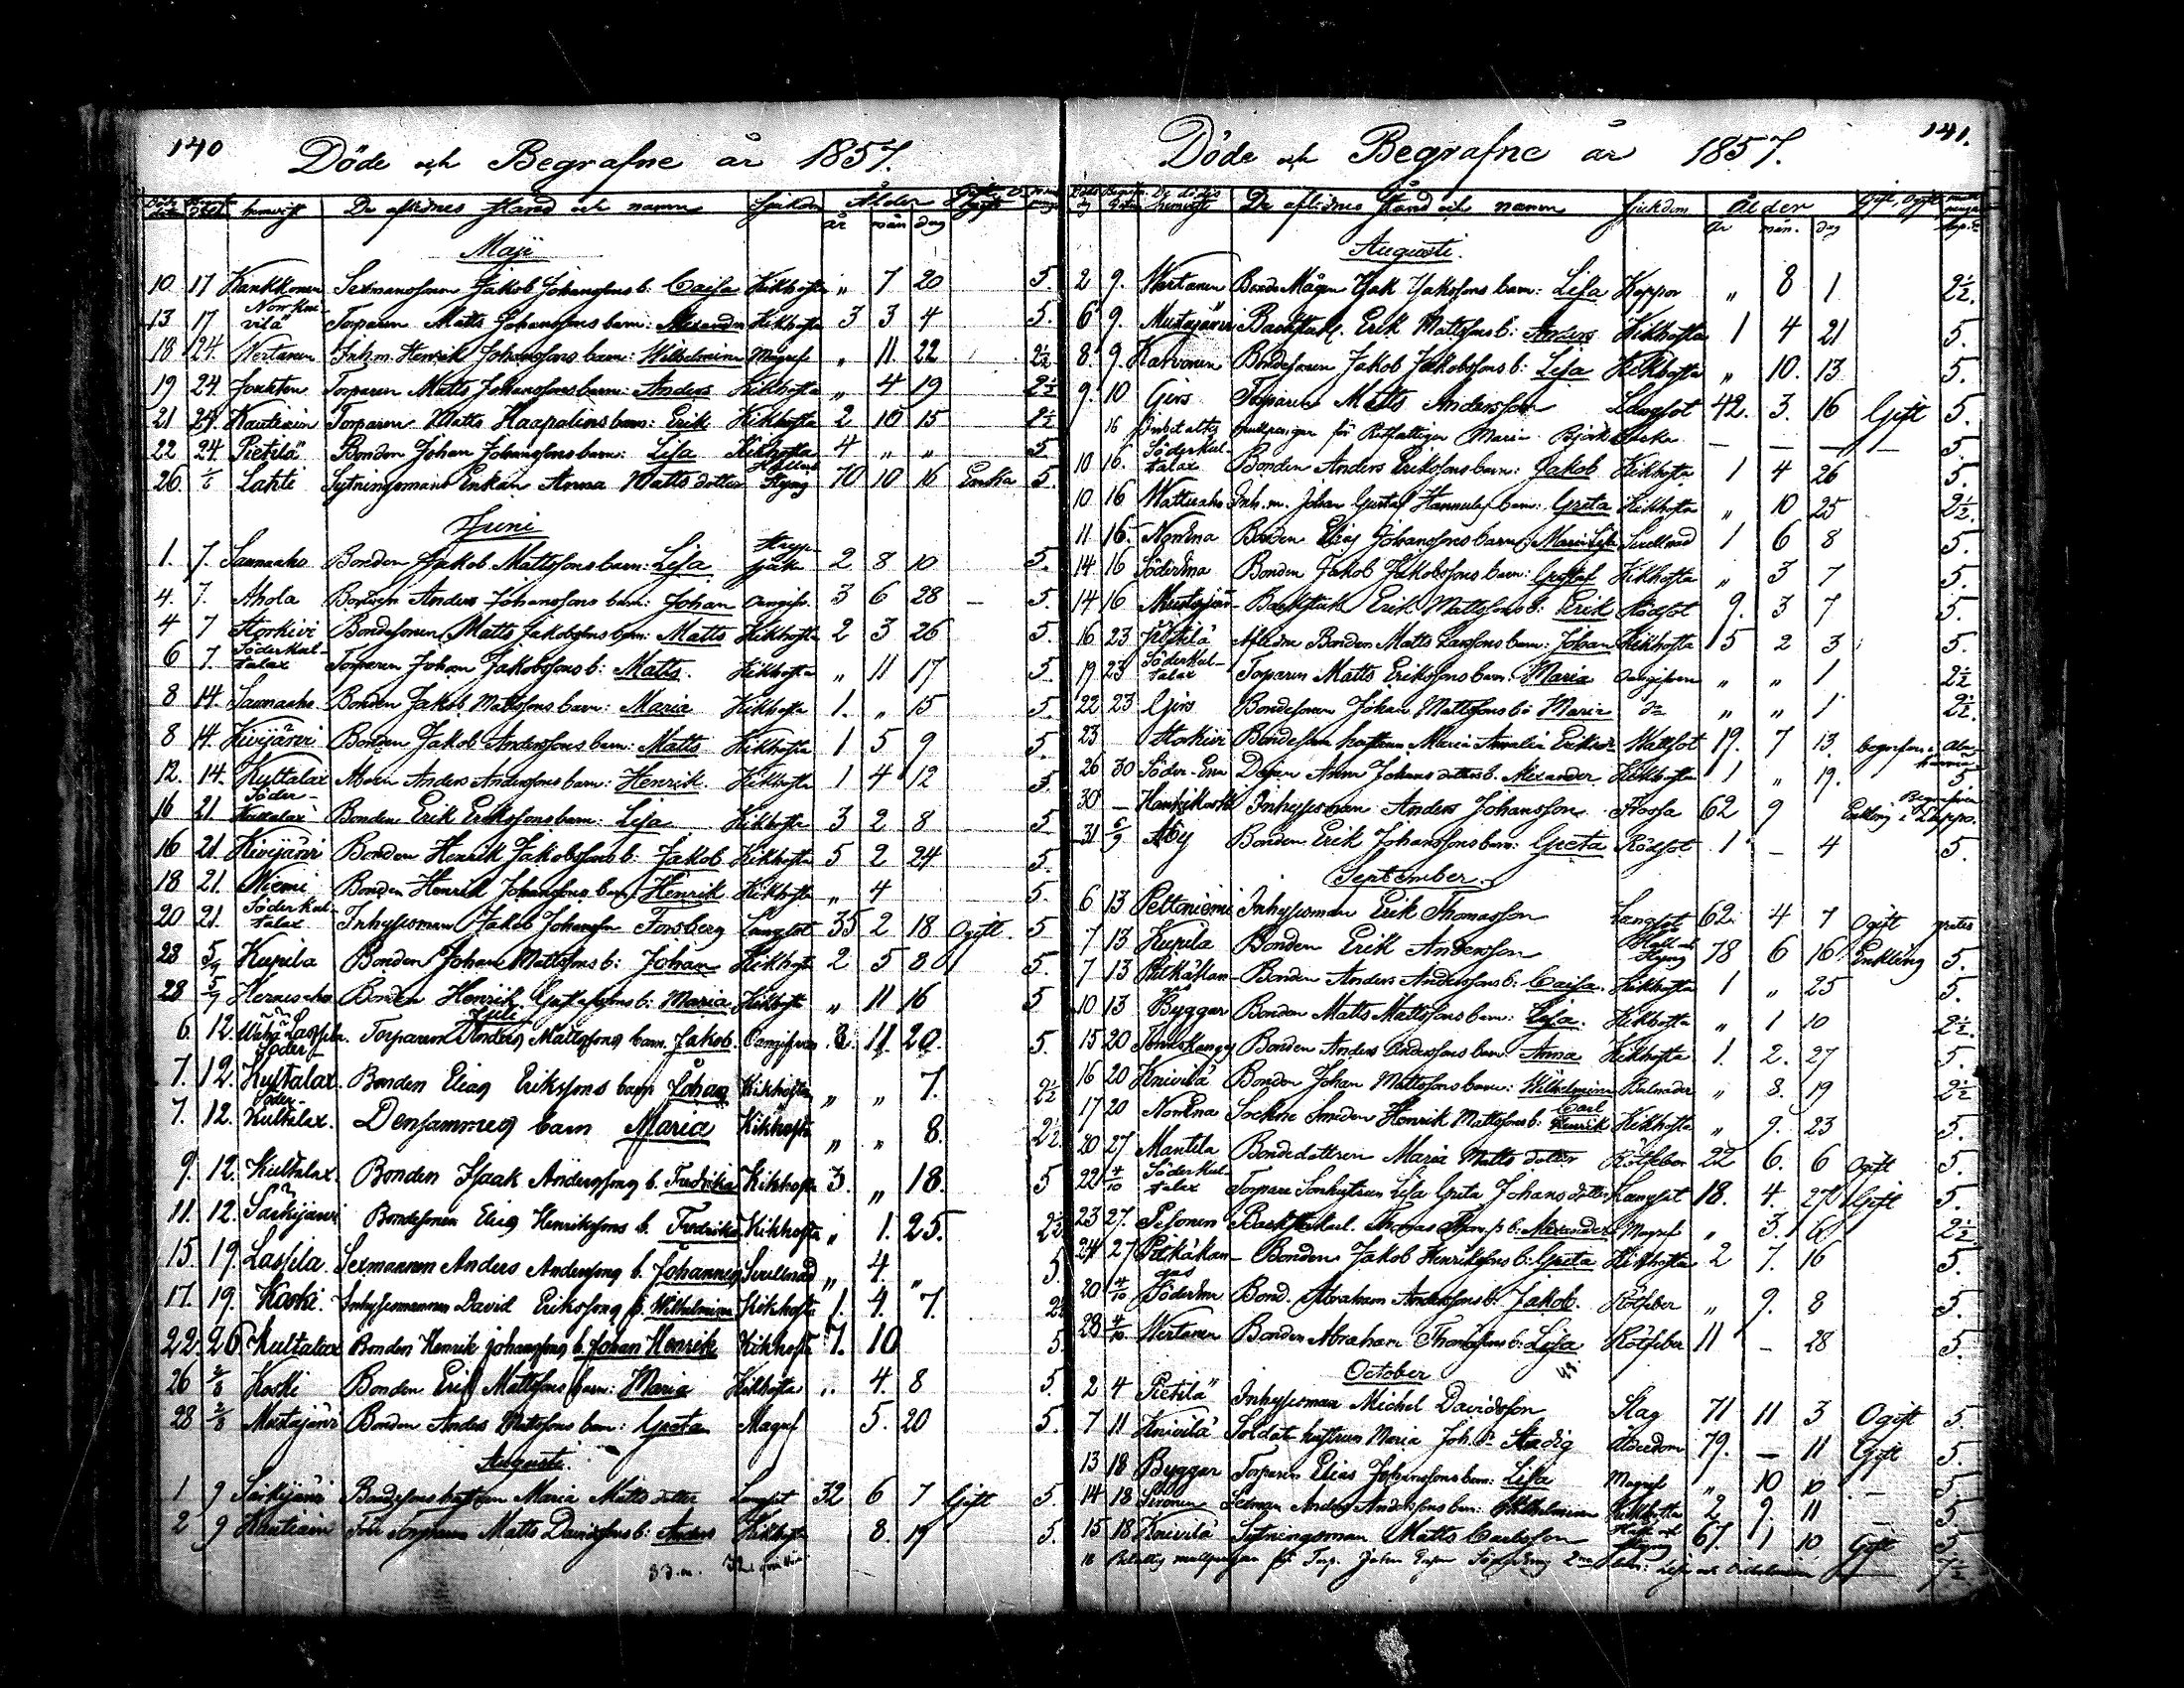 140
Döde och Begrafne år 1857.
hemvist De aflidnes stånd och namn Sjukdom Ålder
år mån dag
Maji
10 17 Kankkonen Sexmansonen Jakob Johanssons b: Caisa Kikhosta " 7 20 5.
13 17 Torparen Matts Johanssons barn: Alexander Kikhosta 3 3 4 5.
18 24. Wertanen Inh.m. Henrik Johanssons barn: Wilhelmina Magref " 11 22 2½
19 24. Torparen Matts Johanssons barn: Anders Kikhosta " 4 19 2½
21 24. Kautiain Torparen Matts Haapalins barn: Erik Kikhosta 2 10 15 2½
22 24. Pietilä Bonden Johan Johanssons barn: Lisa Kikhosta 4 " " 5
26. Lahti Sytningsmans Enkan Anna Matts dotter Håll och Styng 70 10 16 Enka 5.
Juni
1. 7. Saunaaho Bonden Jakob Mattssons barn: Lisa 2 8 10 5.
4. 7. Ahola Bonden Anders Johanssons barn: Johan Oangifv. 3 6 28 – 5.
4 7 Storkivi Bondesonen Matts Jakobssons barn: Matts Kikhosta 2 3 26 5.
6 7 Söderkultalax Torparen Johan Jakobssons b: Matts. Kikhosta " 11 17 5
8 14. Saunaaho Bonden Jakob Mattssons barn: Maria Kikhosta 1. " 15 5.
8 14. Kivijärvi Bonden Jakob Anderssons barn: Matts Kikhosta 1 5 9 5.
12. 14. Kultalax Anders Anderssons barn: Henrik. Kikhosta 1 4 12 5
16 21 Söder-Kultalax Bonden Erik Erikssons barn: Lisa Kikhosta 3 2 8 5
16 21. Kivijärvi Bonden Henrik Jakobssons b: Jakob Kikhosta 5 2 24 5.
18 21. Niemi Bonden Henrik Johanssons barn Henrik Kikhosta " 4 5.
20 21. Söderkultalax Inhysesman Jakob Johansson Forsberg Langsot 35 2 18 Ogift. 5
28 5/7 Kupila Bonden Johan Mattssons b: Johan Kikhosta 2 5 8 5.
28 5/7 Hernesaho Bonden Henrik Gustafssons b: Maria Kikhosta " 11 16 5
Juli
6. 12. Wähä Lassila Torparen Anders Mattssons barn Jakob. Oangifven 8. 11. 20. 5.
7. 12. Söder-Kultalax. Bonden Elias Erikssons barn Johan Kikhosta " " 7. 2½
7. 12. Söder-Kultalax. Densammes barn Maria Kikhosta " " 8. 2½
9. 12. Kultalax. Bonden Isaak Anderssons b. Fredrika Kikhosta 3. " 18. 5
11. 12. Särkijärvi Bondesonen Elias Henrikssons b. Fredrika Kikhosta " 1. 25. 2½
15. 19. Lassila. Sexmannen Anders Anderssons b. Johannes Svullnad " 4. " 5
17. 19. Koski. Inhysesmannen David Erikssons b. Wilhelmina Kikhosta 1. 4. 7. 2½
22. 26 Kultalax Bonden Henrik Johanssons b. Johan Henrik Kikhosta 7. 10 5.
26 2/8 Koski Bonden Erik Mattssons barn: Maria Kikhosta " 4. 8 5.
28 2/8 Mustajärvi Bonden Anders Mattssons barn: Greta Magref 5. 20 5.
Augusti.
1 9 Särkijärvi Bondesons hustrun Maria Matts dotter Langsot 32 6 7 Gift 5.
2 9 Kautiain Torparen Matts Davidssons b: Anders Kikhosta 8. 19 5.
141.
Döde och Begrafne år 1857.
De dödas hemvist De aflidnes stånd och namn Sjukdom Ålder Gift, Ogift
år mån. dag
Augusti.
2 9. Wertanen Bonde Mågen Isak Isakssons barn: Lisa Koppor " 8 1 2½.
6 9. Mustajärvi Backstuk. Erik Mattssons b: Anders Kikhosta 1 4 21 5.
8. 9. Karvonen Bondesonen Jakob Jakobssons b: Lisa Kikhosta " 10. 13 5.
9. 10 Girs Torparen Matts Andersson Langsot 42. 3. 16 Gift 5.
16 Inbetaltes mullpengar för Rotfattigen Maria Björkbacka — — — — 5.
10 16. Söderkultalax Bonden Anders Erikssons barn: Jakob Kikhosta 1 4 26 5.
10 16 Inh.m. Johan Gustaf barn: Greta Kikhosta " 10 25 2½.
11 16. NordEna Bonden Elias Johanssons barn: Maria Lisa Svullnad 1 6 8 5.
14 16 SöderEna Bonden Jakob Jakobssons barn: Gustaf Kikhosta " 3 7 5.
14 16 Mustajärvi Backstuk. Erik Mattssons b: Erik Rödsot 9. 3 7 5.
16 23 Aflidne Bonden Matts Larssons barn: Johan Kikhosta 5 2 3 5.
19 23 Söderkultalax Torparen Matts Erikssons barn: Maria Oangifven " " 1 2½
22 23 Girs Bondesonen Johan Mattssons b: Maria do " " 1 2½.
23 Storkivi Bondeson hustrun Maria Amalia Eriksdr Wattsot 19. 7 13. begrafven i
26 30 Söder-Ena Dejan Anna Johans dotters b. Alexander Kikhosta 1 " 19. 5
30 – Inhysesman Anders Johansson Frossa 62 9 Enkling Begrafven i Lappo.
31 6/9 Åby Bonden Erik Johanssons barn: Greta Rödsot 1 – 4 5.
September.
6 13 Peltoniemi Inhysesman Erik Thomasson Langsot 62. 4 7 Ogift gratis
7 13 Kupila Bonden Erik Andersson Håll och Styng 78 6 16 Enkling 5.
7 13 Pitkäkangas Bonden Anders Anderssons b: Caisa. Kikhosta 1 " 25 5.
10 13 Byggar Bonden Matts Mattssons barn: Lisa. Kikhosta " 1 10 2½.
15 20 Bonden Anders Anderssons barn: Anna Kikhosta 1. 2. 27 5.
16 20 Knivilä Bonden Johan Mattssons barn: Wilhelmina " 8. 19 2½
17 20 NordEna Sockne Smeden Henrik Mattssons b: Carl Henrik Kikhosta " 9. 23 5.
20 27 Mantila Bondedottren Maria Matts dotter Rötfeber 22 6. 6 Ogift 5.
22 4/10 Söderkultalax Torpare Sonhustrun Lisa Greta Johans dotter Langsot 18. 4. 27 Gift 5.
23 27. Pesonen Backstukarl. Thomas Thomss. b: Alexander Magref " 3. 6 2½.
24 27 Pitkäkangas Bonden Jakob Henrikssons b: Greta Kikhosta 2 7. 16 5.
20 4/10 SöderEna Bond. Abraham Anderssons b: Jakob. Rötfeber " 9. 8 5.
28 4/10 Wertanen Bonden Abraham Thomassons b: Lisa Rötfeber 11 – 28 5.
October
2 4 Pietilä Inhysesman Michel Davidsson Slag 71 11 3 Ogift 5.
7 11 Knivilä Soldats hustrun Maria Joh. dr Stadig Ålderdom 79. – 11 Gift 5.
13 18 Byggar Torparen Elias Johanssons barn: Lisa Magref " 10 10 – 5
14 18 Sironen Sexman Anders Anderssons barn: Wilhelmina Kikhosta 2 9. 11 – 5
15 18 Knivilä Sytningsman Matts Carlsson Håll och Styng 67. 1 10 Gift 5
18 mullpengar för Torp. Johan 2ne barn: Lisa och Wilhelmina 7½